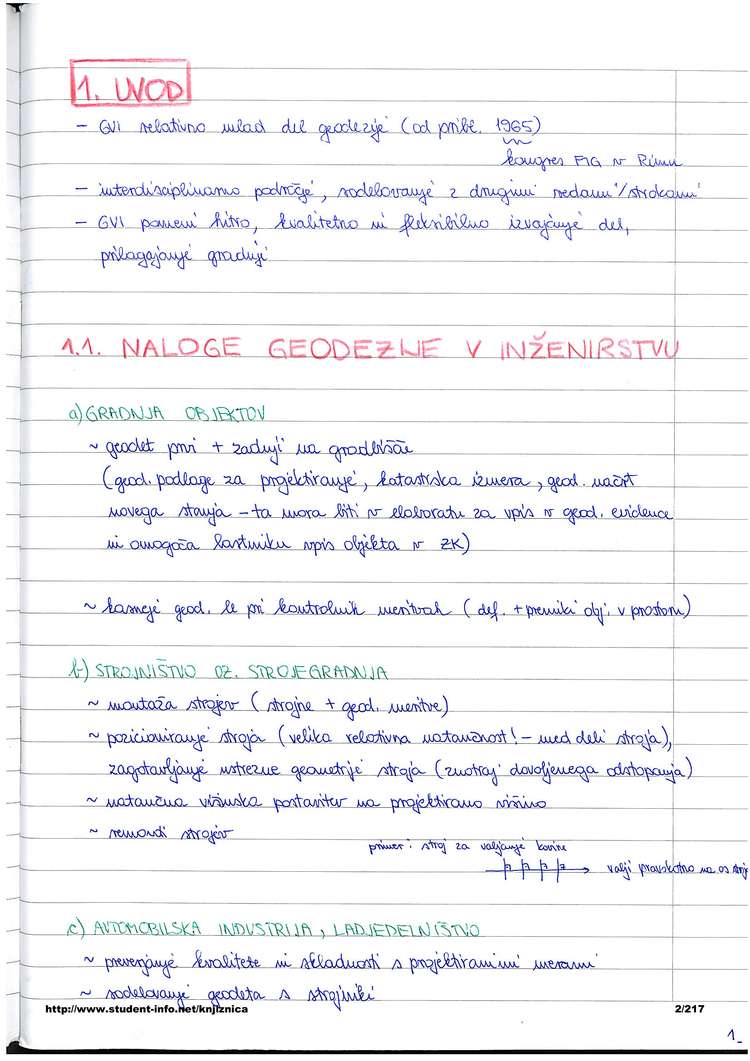 1. UVOD
- GVI relativno mlad del geodezije (od pribl. 1965)
kongres FIG v Rimu
- interdisciplinarno področje, sodelovanje z drugimi vedami/strokami
- GVI pomeni hitro, kvalitetno in fleksibilno izvajanje del,
prilagajanje gradnji
1.1. NALOGE GEODEZIJE V INŽENIRSTVU
a) GRADNJA OBJEKTOV
~ geodet prvi + zadnji na gradbišče
(geod. podlage za projektiranje, katastrska izmera, geod. načrt
novega stanja - ta mora biti v elaboratu za vpis v geod. evidence
in omogoča lastniku vpis objekta v ZK)
~ kasneje geod. le pri kontrolnih meritvah (def. + premiki obj. v prostoru)
b) STROJNIŠTVO OZ. STROJEGRADNJA
~ montaža strojev (strojne + geod. meritve)
~ pozicioniranje stroja (velika relativna natančnost! - med deli stroja),
zagotavljanje ustrezne geometrije stroja (znotraj dovoljenega odstopanja)
~ natančna višinska postavitev na projektirano višino
~ remonti strojev
primer: stroj za valjanje kovine
valji pravokotno na os stroj
c) AVTOMOBILSKA INDUSTRIJA, LADJEDELNIŠTVO
~ preverjanje kvalitete in skladnosti s projektiranimi merami
~ sodelovanje geodeta s strojniki
http://www.student-info.net/knjiznica
2/217
1